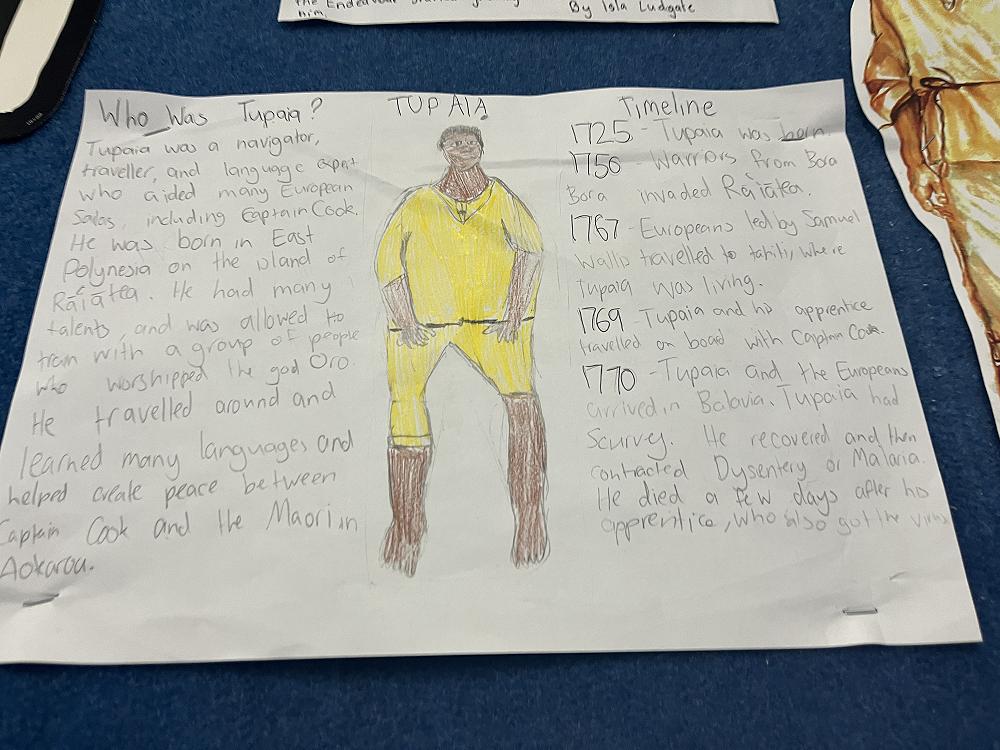 the Endeavour
him.
By Isla Ludgate
Who Was Tupaia?
Tupaia was a navigator,
traveller, and language expert
who aided many European
Sailas, including Captain Cook.
He was born in East
Polynesia on the island of
Raiatea. He had many
talents, and was allowed to
train with a group of people
who worshipped the god Oro.
He travelled around and
learned many languages and
helped create peace between
Captain Cook and the Maori in
Aokaroa.
TUPAIA
Timeline
1725 - Tupaia was born.
1756 - Warriors from Bora
Bora invaded Raiatea.
1767 - Europeans led by Samuel
Wallis travelled to tahiti, where
Tupaia was living.
1769 - Tupaia and his apprentice
travelled on board with Captain Cook.
1770 - Tupaia and the Europeans
arrived in Batavia. Tupaia had
Scurvey. He recovered and then
contracted Dysentery or Malaria.
He died a few days after his
apprentice, who also got the virus